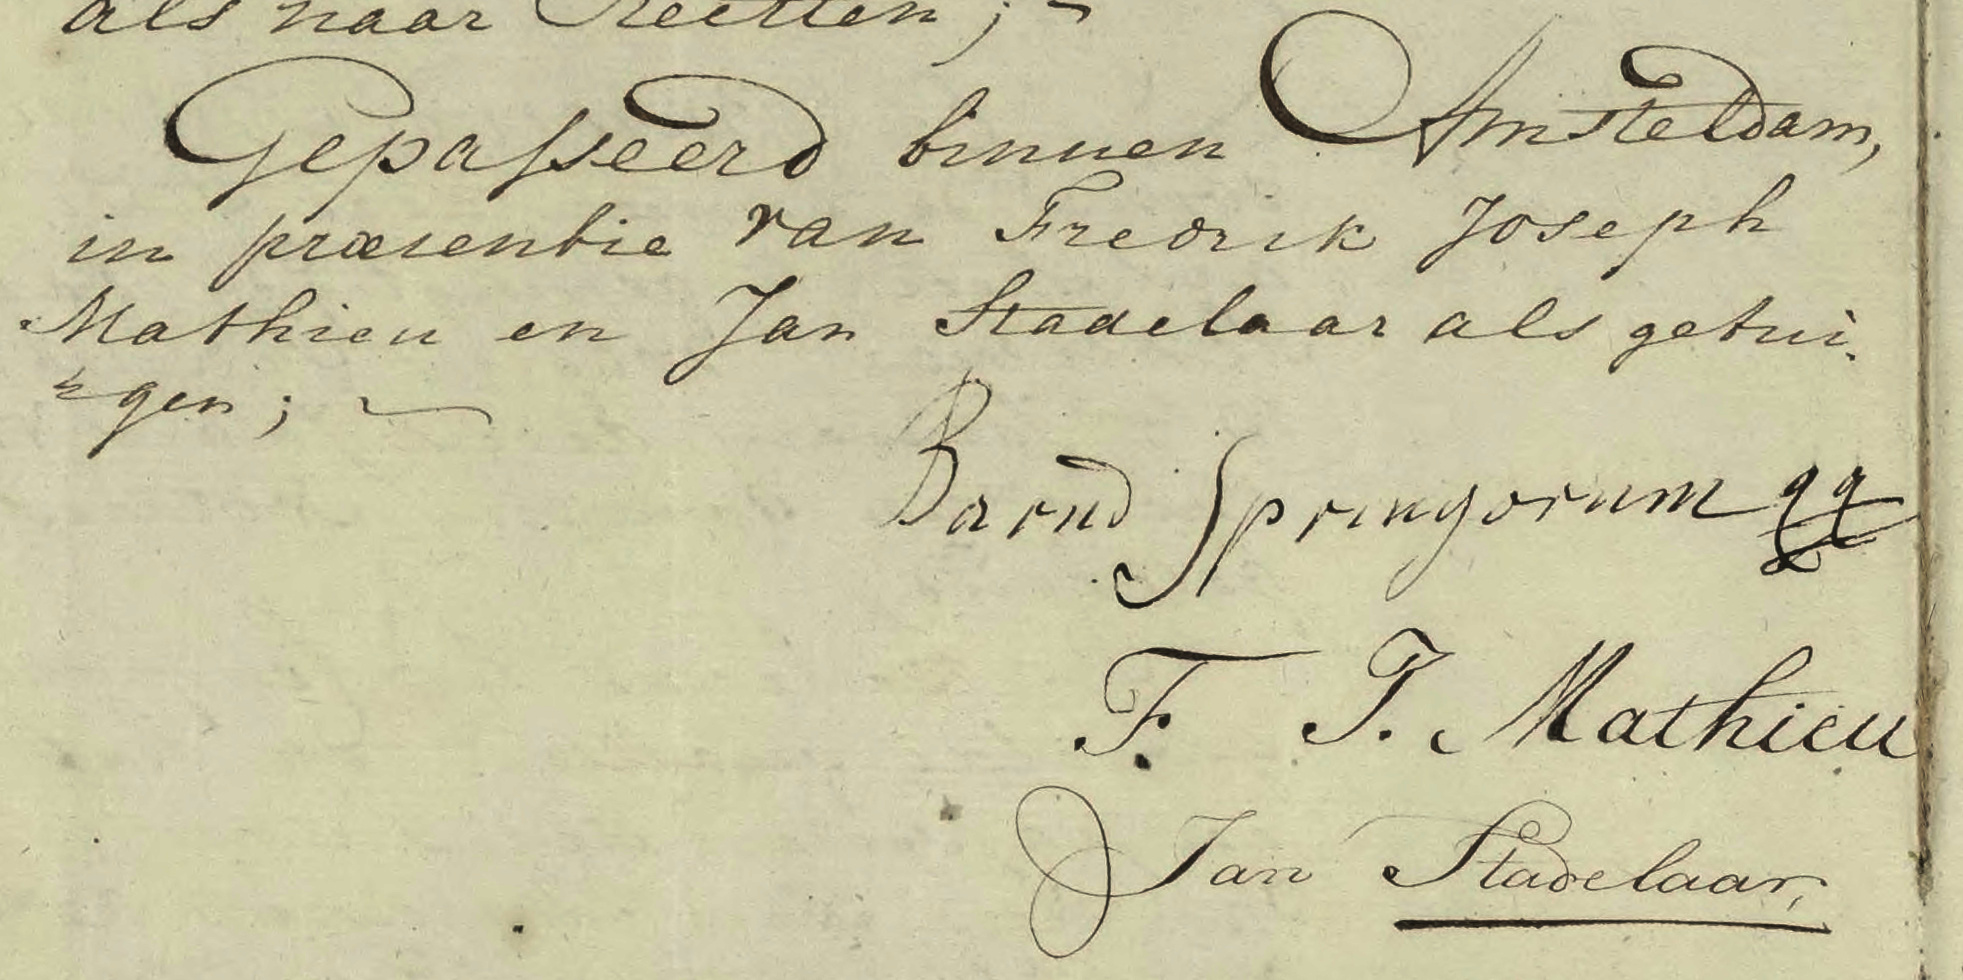 als naar Rechten;
Gepasseerd binnen Amsteldam,
in præsentie van Fredrik Joseph
Mathieu en Jan Stadelaar als getui-
gen;
Barnd Springorum qq
F. J. Mathieu
Jan Stadelaar,